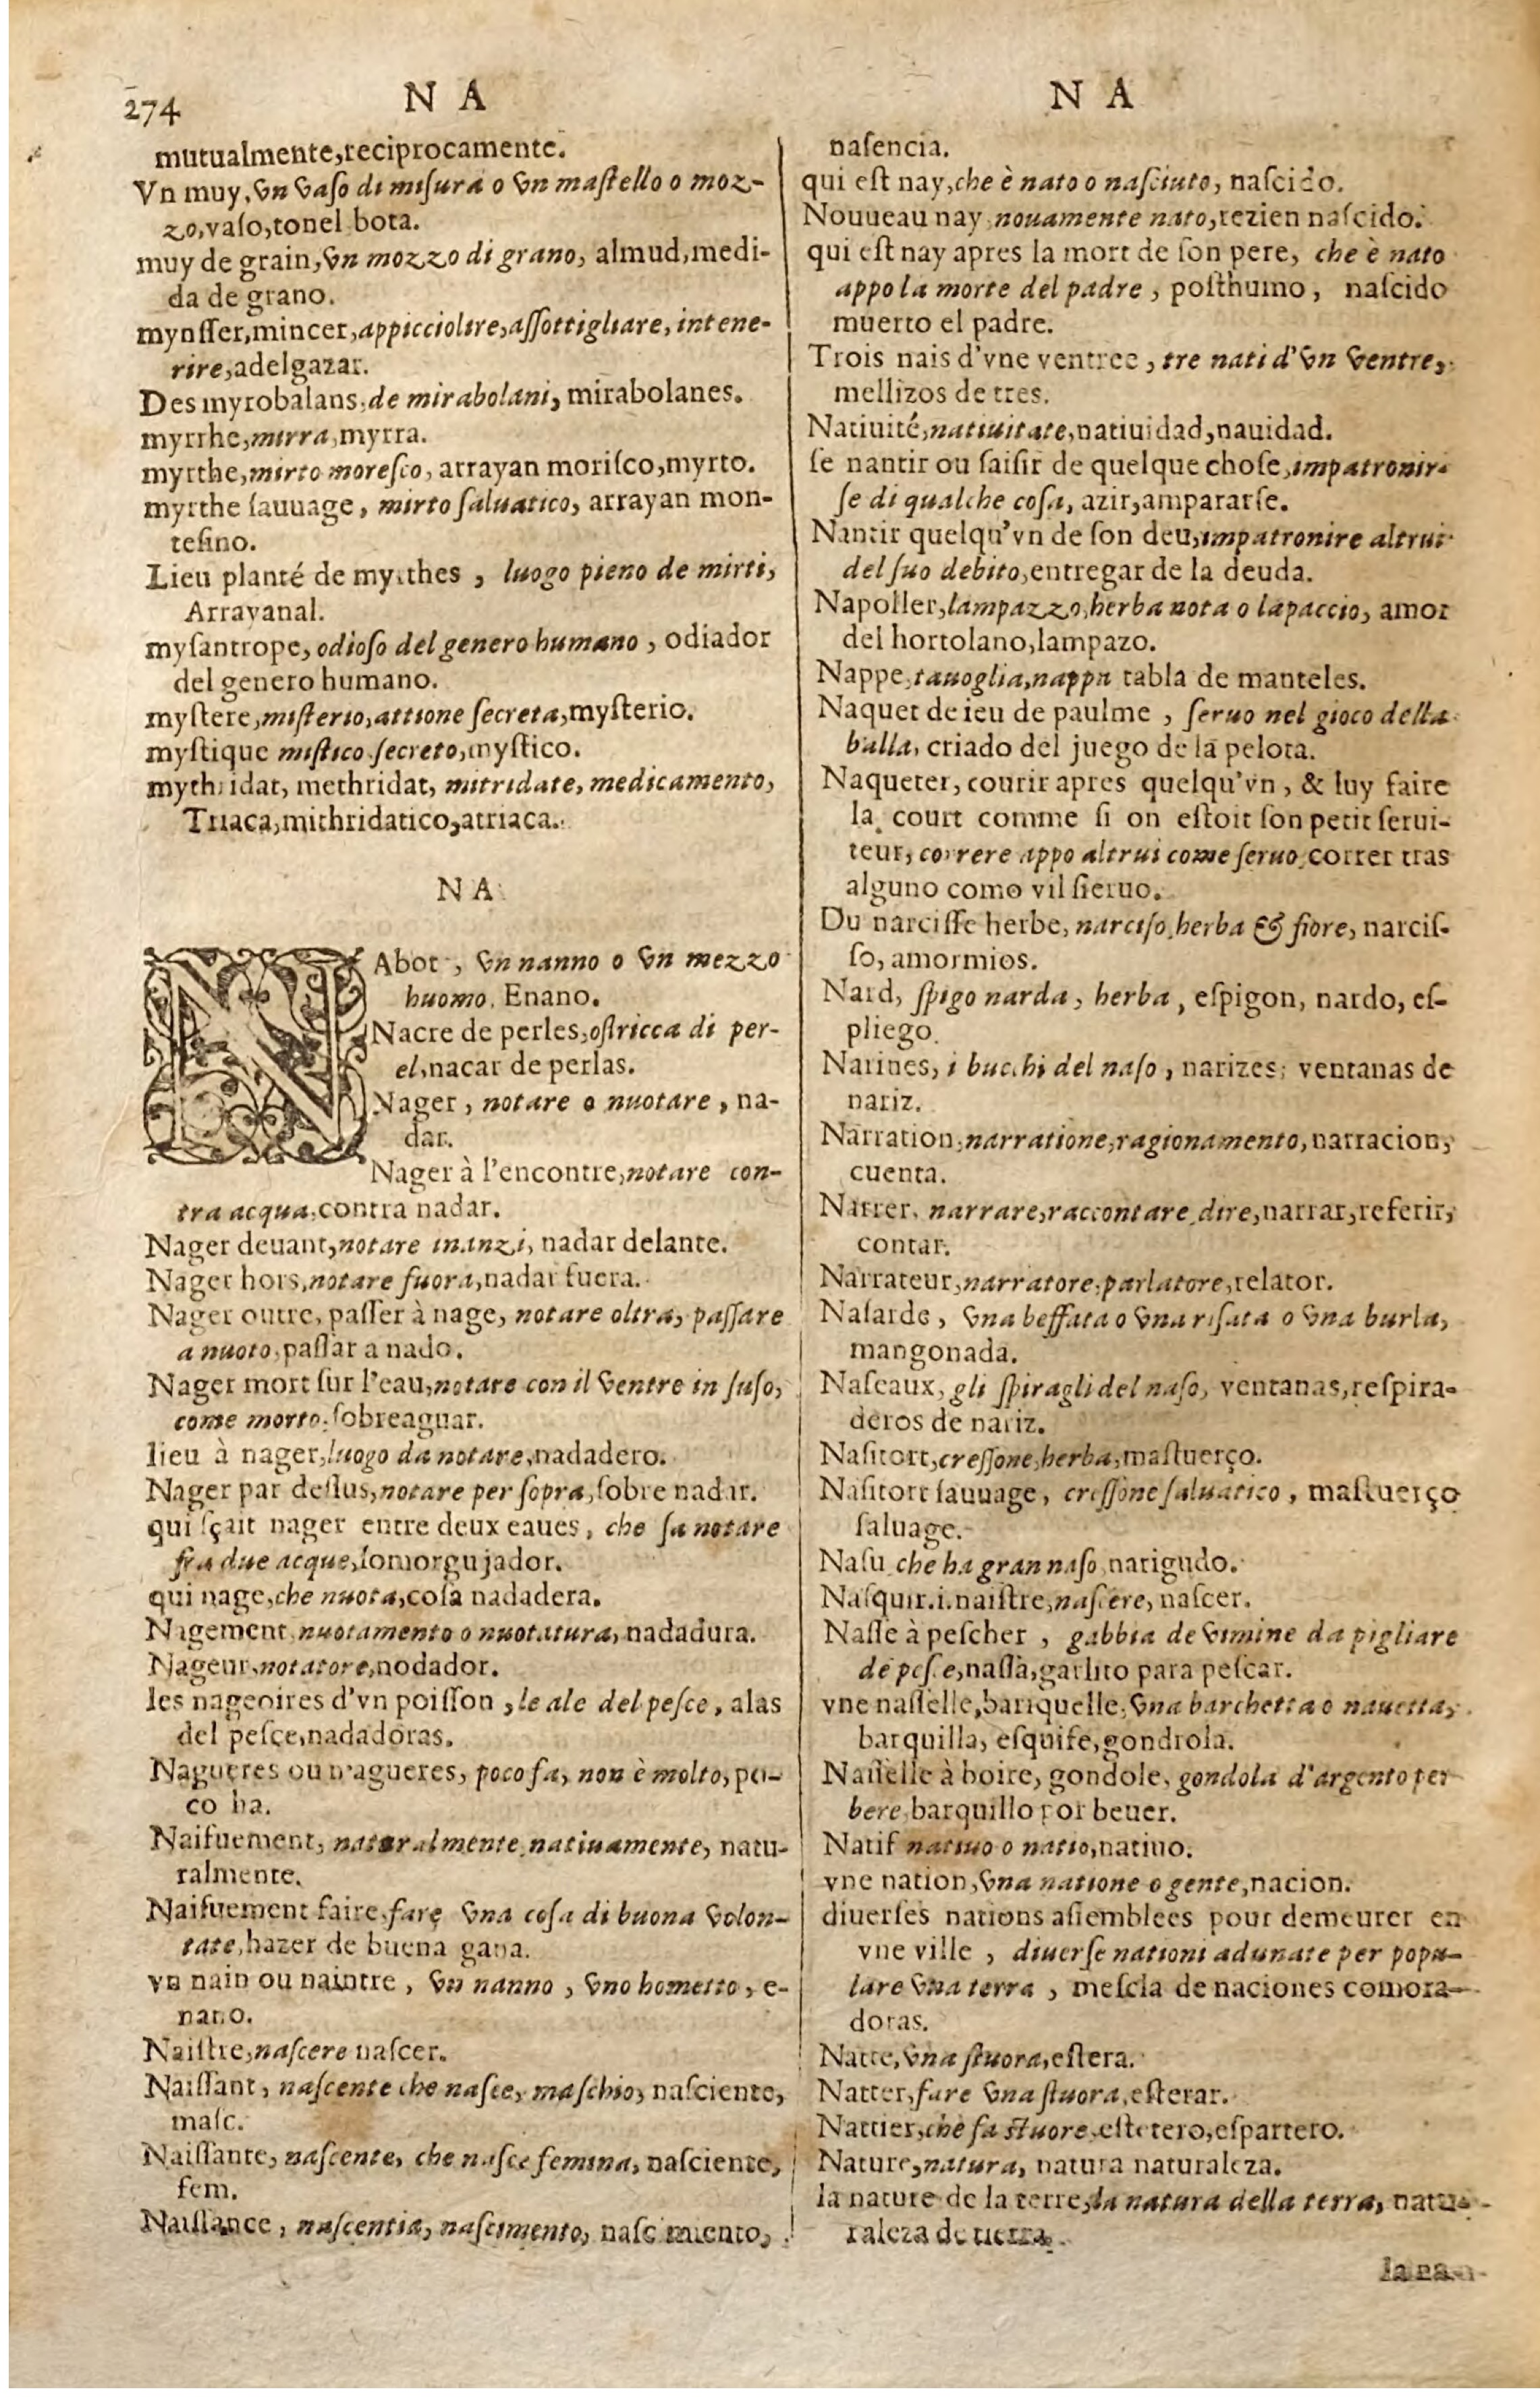 274 N A N A
mutualmente,reciprocamente.
Vn muy,vn vaſo di miſura o vn maſtello o moz-
zo,vaſo,tonel bota.
muy de grain,vn mozzo di grano, almud,medi-
da de grano.
mynſſer,mincer,appicciolire,aſſottigliare, intene-
rire,adelgazar.
Des myrobalans,de mirabolani, mirabolanes.
myrrhe,mirra,myrra.
myrthe,mirto moreſco, arrayan moriſco,myrto.
myrthe ſauuage, mirto ſaluatico, arrayan mon-
teſino.
Lieu planté de myrthes , luogo pieno de mirti,
Arrayanal.
myſantrope, odioſo del genero humano , odiador
del genero humano.
myſtere,miſterio,attione ſecreta,myſterio.
myſtique miſtico ſecreto,myſtico.
mythridat, methridat, mitridate, medicamento,
Triaca,mithridatico,atriaca.
N A
NAbot , vn nanno o vn mezzo
huomo, Enano.
Nacre de perles,oſtricca di per-
el,nacar de perlas.
Nager , notare o nuotare , na-
dar.
Nager à l'encontre,notare con-
tra acqua,contra nadar.
Nager deuant,notare inanzi, nadar delante.
Nager hors,notare fuora,nadar fuera.
Nager outre, paſſer à nage, notare oltra, paſſare
a nuoto,paſſar a nado.
Nager mort ſur l'eau,notare con il ventre in ſuſo,
come morto,ſobreaguar.
lieu à nager,luogo da notare,nadadero.
Nager par deſſus,notare per ſopra,ſobre nadar.
qui ſçait nager entre deux eaues, che ſa notare
fra due acque,ſomorgujador.
qui nage,che nuota,coſa nadadera.
Nagement nuotamento o nuotatura, nadadura.
Nageur,notatore,nodador.
les nageoires d'vn poiſſon ,le ale del peſce, alas
del peſçe,nadadoras.
Nagueres ou n'agueres, poco fa, non è molto, po-
co ha.
Naifuement, naturalmente natiuamente, natu-
ralmente.
Naifuement faire,fare vna coſa di buona volon-
tate,hazer de buena gana.
vn nain ou naintre , vn nanno , vno hometto , e-
nano.
Naiſtre,naſcere naſcer.
Naiſſant , naſcente che naſce, maſchio, naſciente,
maſc.
Naiſſante, naſcente, che naſce femina, naſciente,
fem.
Naiſſance , naſcentia, naſcimento, naſcimiento,
naſencia.
qui eſt nay,che è nato o naſciuto, naſcido.
Nouueau nay nouamente nato,rezien naſcido.
qui eſt nay apres la mort de ſon pere, che è nato
appo la morte del padre , poſthumo, naſcido
muerto el padre.
Trois nais d'vne ventree , tre nati d'vn ventre,
mellizos de tres.
Natiuité,natiuitate,natiuidad,nauidad.
ſe nantir ou ſaiſir de quelque choſe,impatronir-
ſe di qualche coſa, azir,ampararſe.
Nantir quelqu'vn de ſon deu,impatronire altrui
del ſuo debito,entregar de la deuda.
Napoller,lampazzo,herba nota o lapaccio, amor
del hortolano,lampazo.
Nappe,tauoglia,nappa tabla de manteles.
Naquet de ieu de paulme , ſeruo nel gioco della
balla, criado del juego de la pelota.
Naqueter, courir apres quelqu'vn , & luy faire
la court comme ſi on eſtoit ſon petit ſerui-
teur, correre appo altrui come ſeruo,correr tras
alguno como vil ſieruo.
Du narciſſe herbe, narciſo,herba & fiore, narciſ-
ſo, amormios.
Nard, ſpigo narda , herba , eſpigon, nardo, eſ-
pliego.
Narines, i bucchi del naſo , narizes, ventanas de
nariz.
Narration,narratione,ragionamento, narracion,
cuenta.
Narrer, narrare,raccontare,dire,narrar,referir,
contar.
Narrateur,narratore,parlatore,relator.
Naſarde , vna beffata o vna riſata o vna burla,
mangonada.
Naſeaux, gli ſpiragli del naſo, ventanas,reſpira-
deros de nariz.
Naſitort,creſſone,herba,maſtuerço.
Naſitort ſauuage, creſſone ſaluatico , maſtuerço
ſaluage.
Naſu che ha gran naſo narigudo.
Naſquir.i.naiſtre,naſcere, naſcer.
Naſſe à peſcher , gabbia de vimine da pigliare
de peſce,naſſa,garlito para peſcar.
vne naſſelle,bariquelle,vna barchetta o nauetta,
barquilla, eſquife,gondrola.
Naſſelle à boire, gondole, gondola d'argento per
bere barquillo por beuer.
Natif natiuo o natio,natiuo.
vne nation,vna natione o gente,nacion.
diuerſes nations aſſemblees pour demeurer en
vne ville , diuerſe nationi adunate per popu-
lare vna terra , meſcla de naciones comora-
doras.
Natte,vna ſtuora,eſtera.
Natter,fare vna ſtuora,eſterar.
Nattier,che fa ſtuore,eſterero,eſpartero.
Nature,natura, natura naturaleza.
la nature de la terre,la natura della terra, natu-
raleza de tierra.
la na-